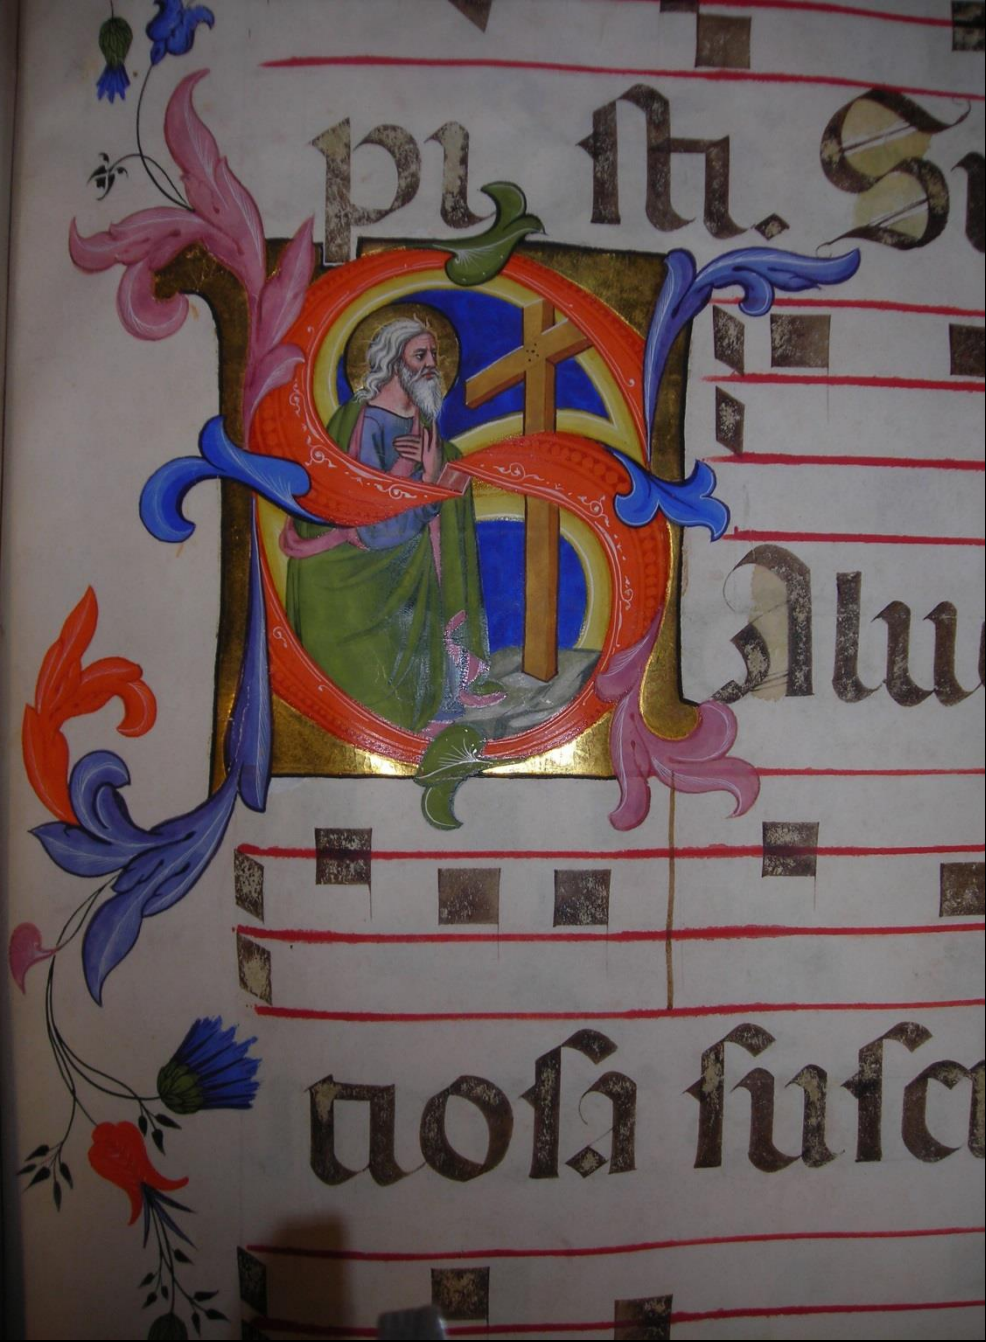 pi ſti. Su
SAlue
tioſa ſuſc